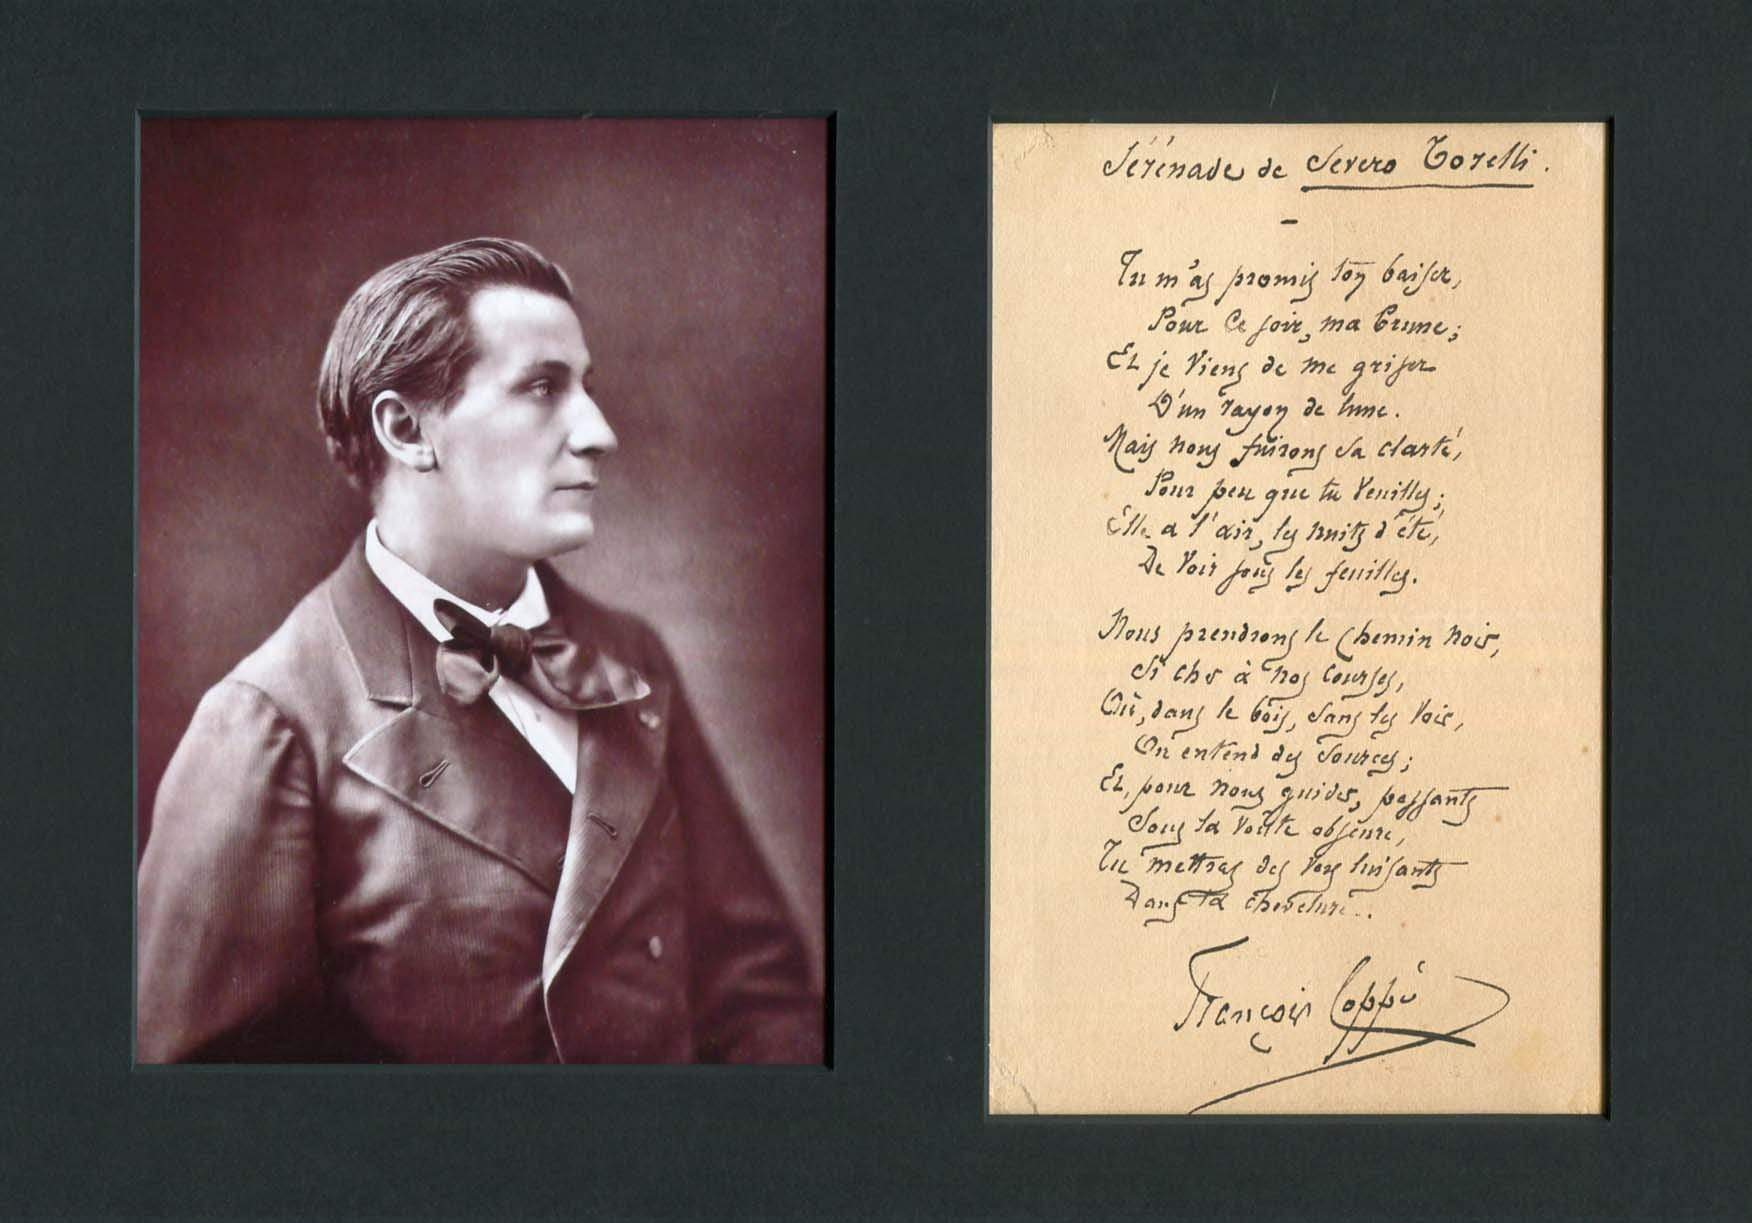 Sérénade de Severo Torelli.
–
Tu m'as promis ton baiser,
Pour ce soir, ma brune;
Et je viens de me griser
D'un rayon de lune.
Mais nous fuirons sa clarté,
Pour peu que tu veuilles;
Elle a l'air, les nuits d'été,
De voir sous les feuilles.
Nous prendrons le chemin noir,
Si cher à nos courses,
Où, dans le bois, sans les voir,
On entend des sources;
Et, pour nous guider, passants
Sous la voûte obscure,
Tu mettras des vers luisants
Dans ta chevelure..
François Coppée